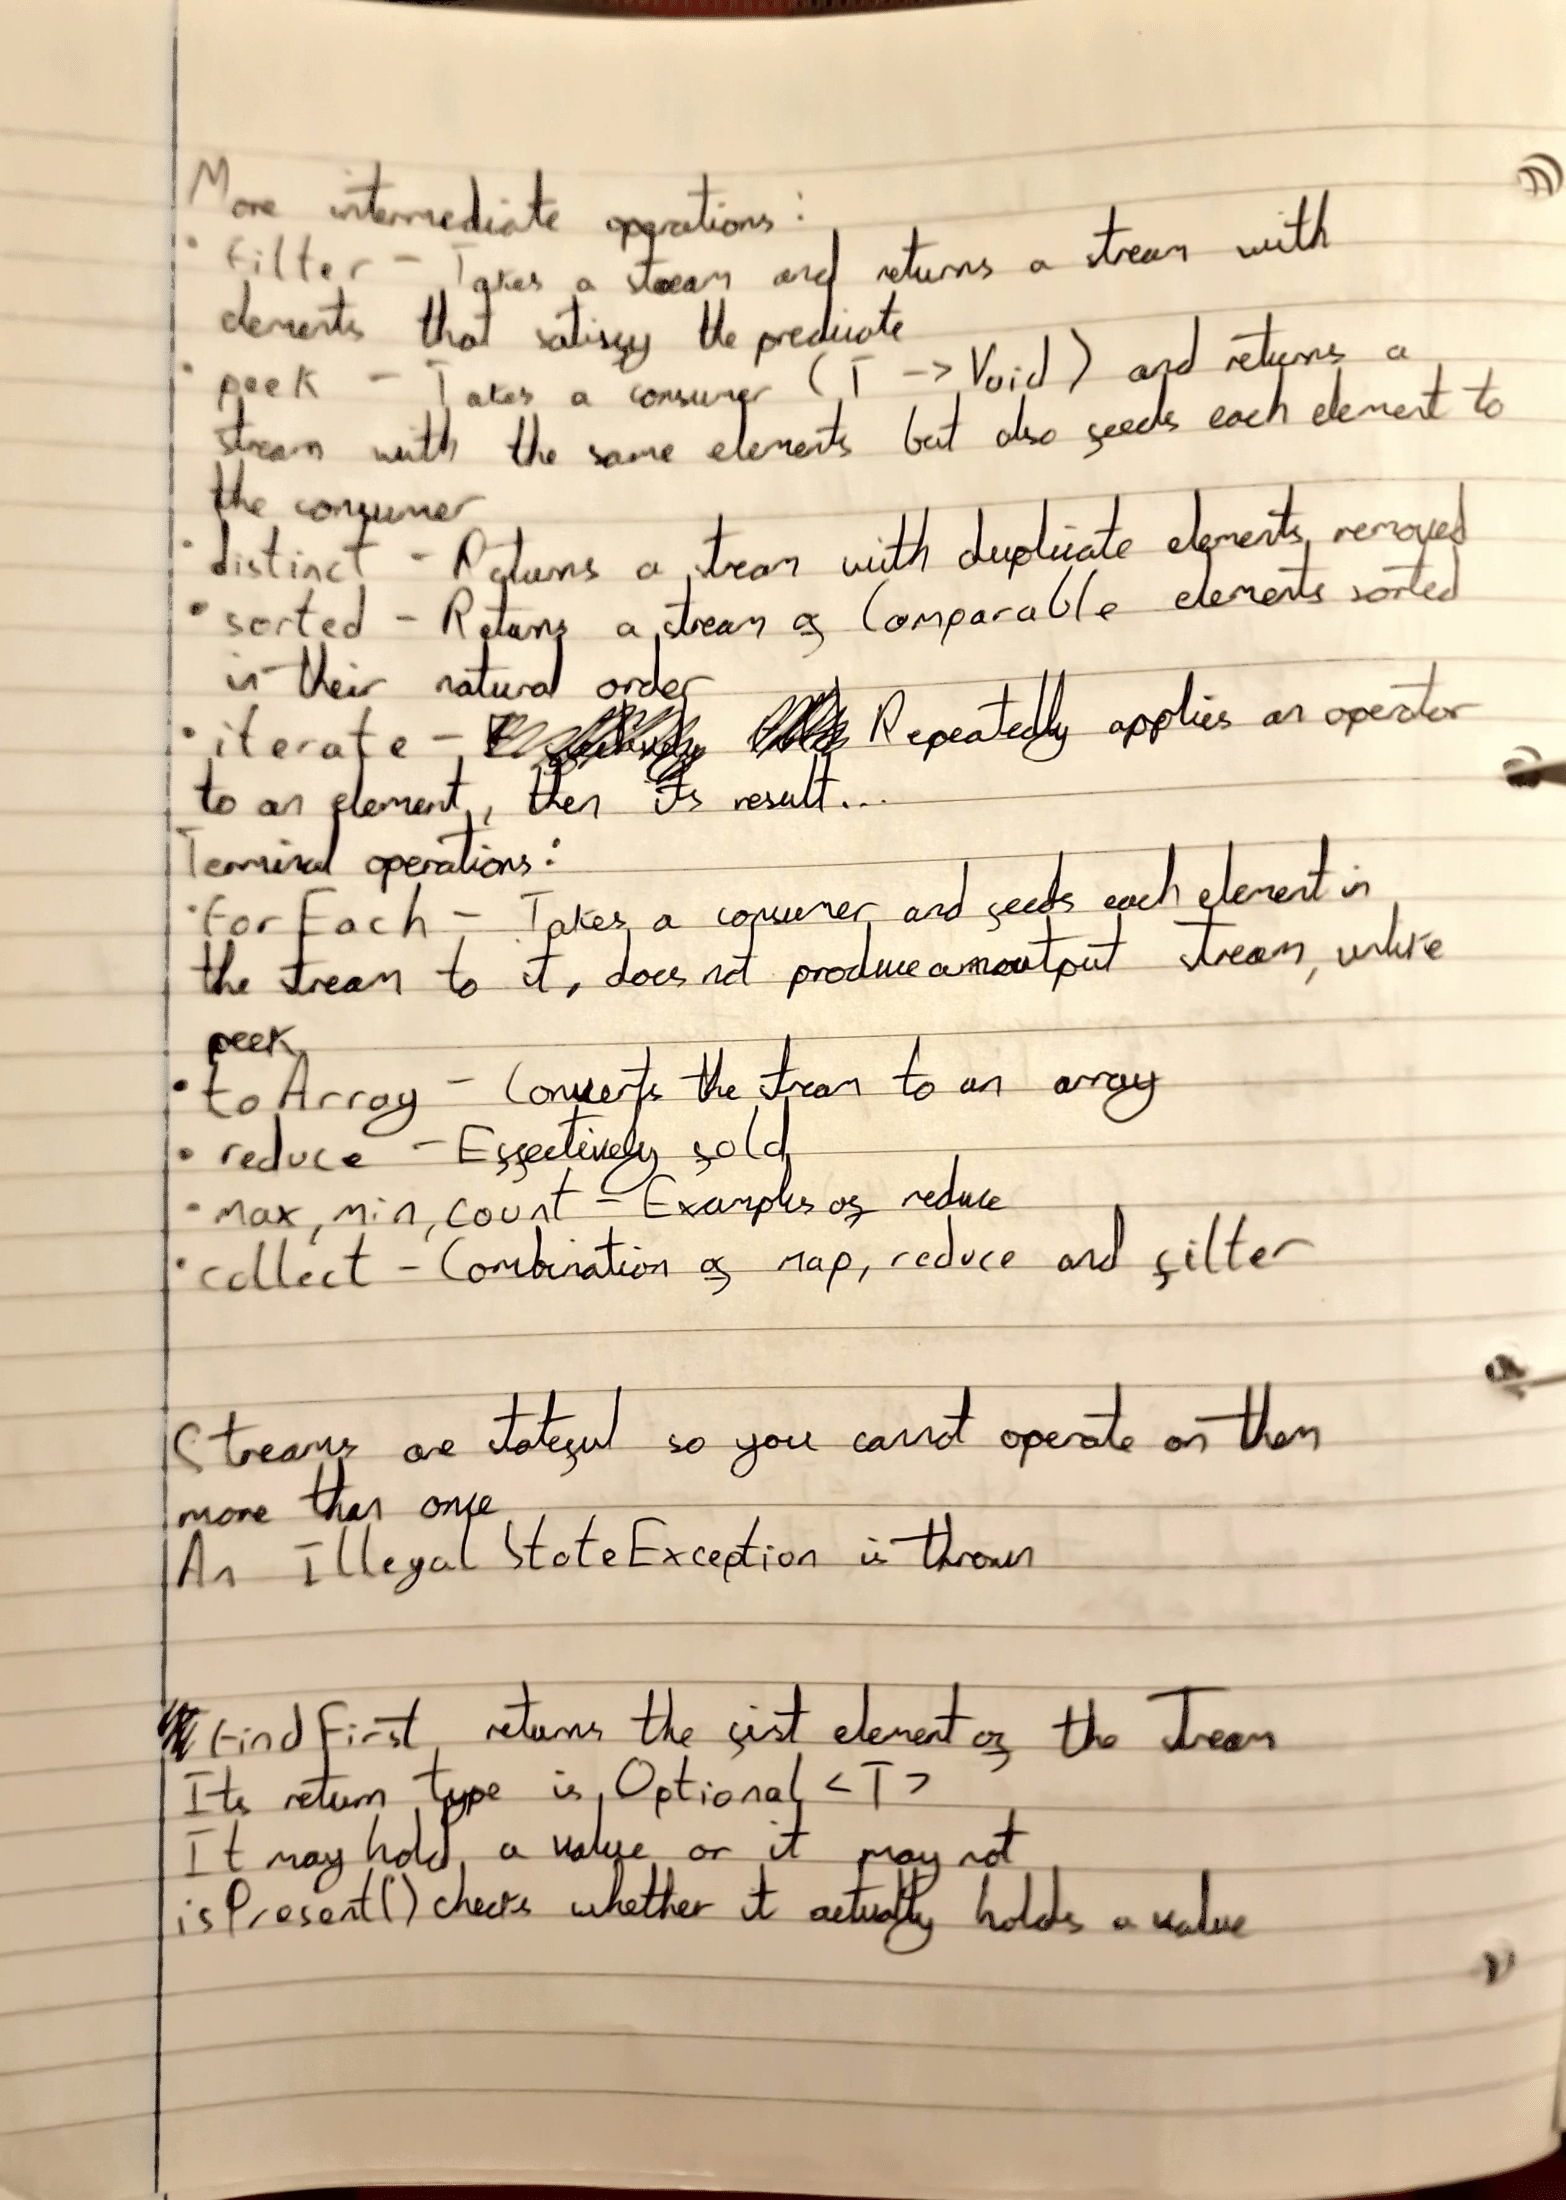 More intermediate operations:
• filter - Takes a stream and returns a stream with
elements that satisfy the predicate
• peek - Takes a consumer (T -> Void) and returns a
stream with the same elements but also feeds each element to
the consumer
• distinct - Returns a stream with duplicate elements removed
• sorted - Returns a stream of Comparable elements sorted
in their natural order
• iterate - Repeatedly applies an operator
to an element, then its result...
Terminal operations:
• forEach - Takes a consumer and feeds each element in
the stream to it, does not produce an output stream, unlike
peek
• toArray - Converts the stream to an array
• reduce - Effectively fold
• max, min, count - Examples of reduce
• collect - Combination of map, reduce and filter
Streams are stateful so you cannot operate on them
more than once
An IllegalStateException is thrown
findFirst returns the fist element of the stream
Its return type is Optional <T>
It may hold a value or it may not
isPresent() checks whether it actually holds a value